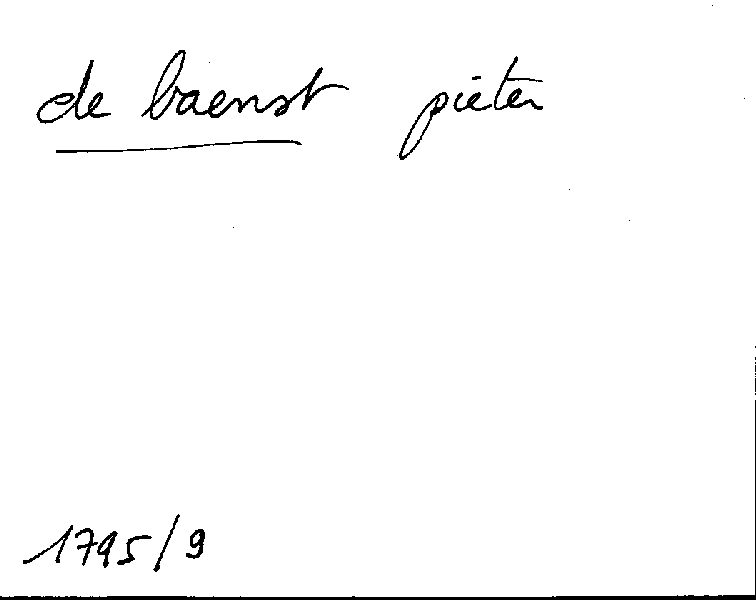 de baenst pieter
1795/9